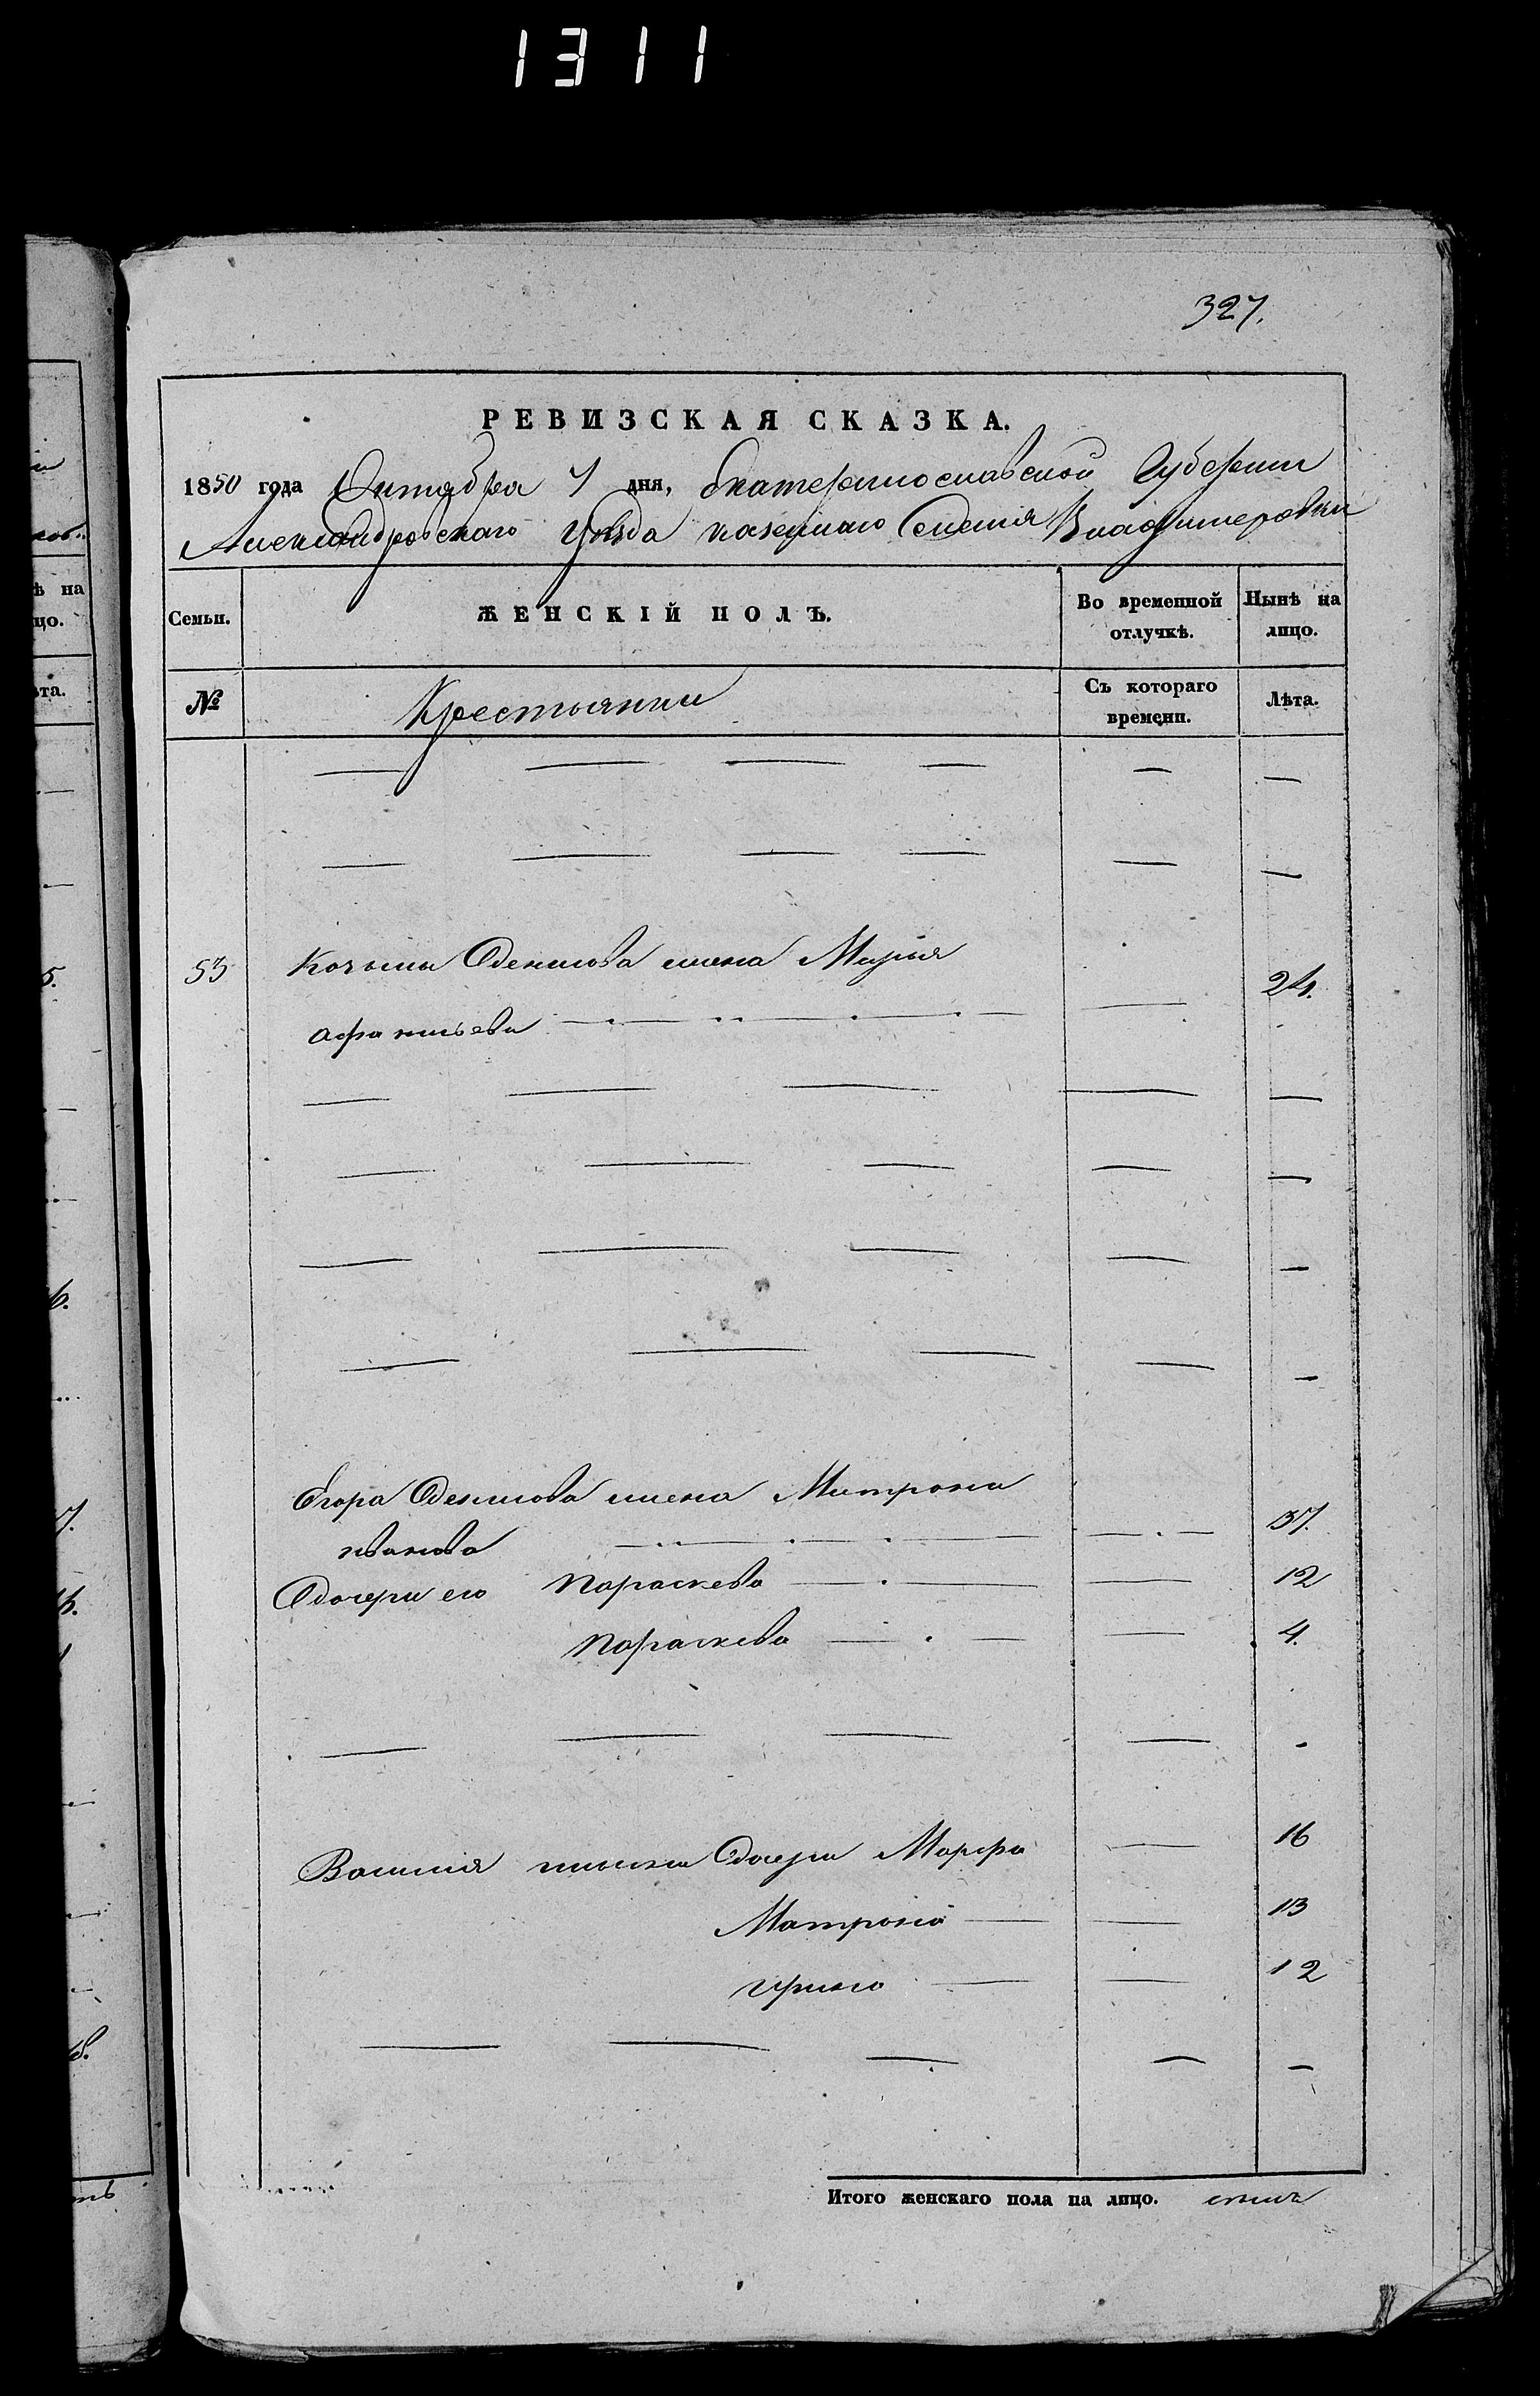 1311
327.
РЕВИЗСКАЯ СКАЗКА.
1850 года Октября 7 дня, Екатеринославской Губернии
Александровскаго Уѣзда казеннаго Селенія Владимеровки
Семьи. ЖЕНСКІЙ ПОЛЪ. Во временной отлучкѣ. Нынѣ на лицо.
№ Крестьянки Съ котораго времени. Лѣта.
— — — — — —
— — — — — —
53 Козьмы жена Марія
Афанасьева — 24.
— — — — —
— — — — —
— — — — —
— — — — —
Егора жена Матрона
иванова — 37.
Дочери его Параскева — — 12
Параскева — — 4.
— — — — -
Василія дочери Марфа — 16
Матрона — — 13
ирина — — 12
— — — — —
Итого женскаго пола на лицо. семь
ѣ на
цо.
ѣта.
5.
6.
7.